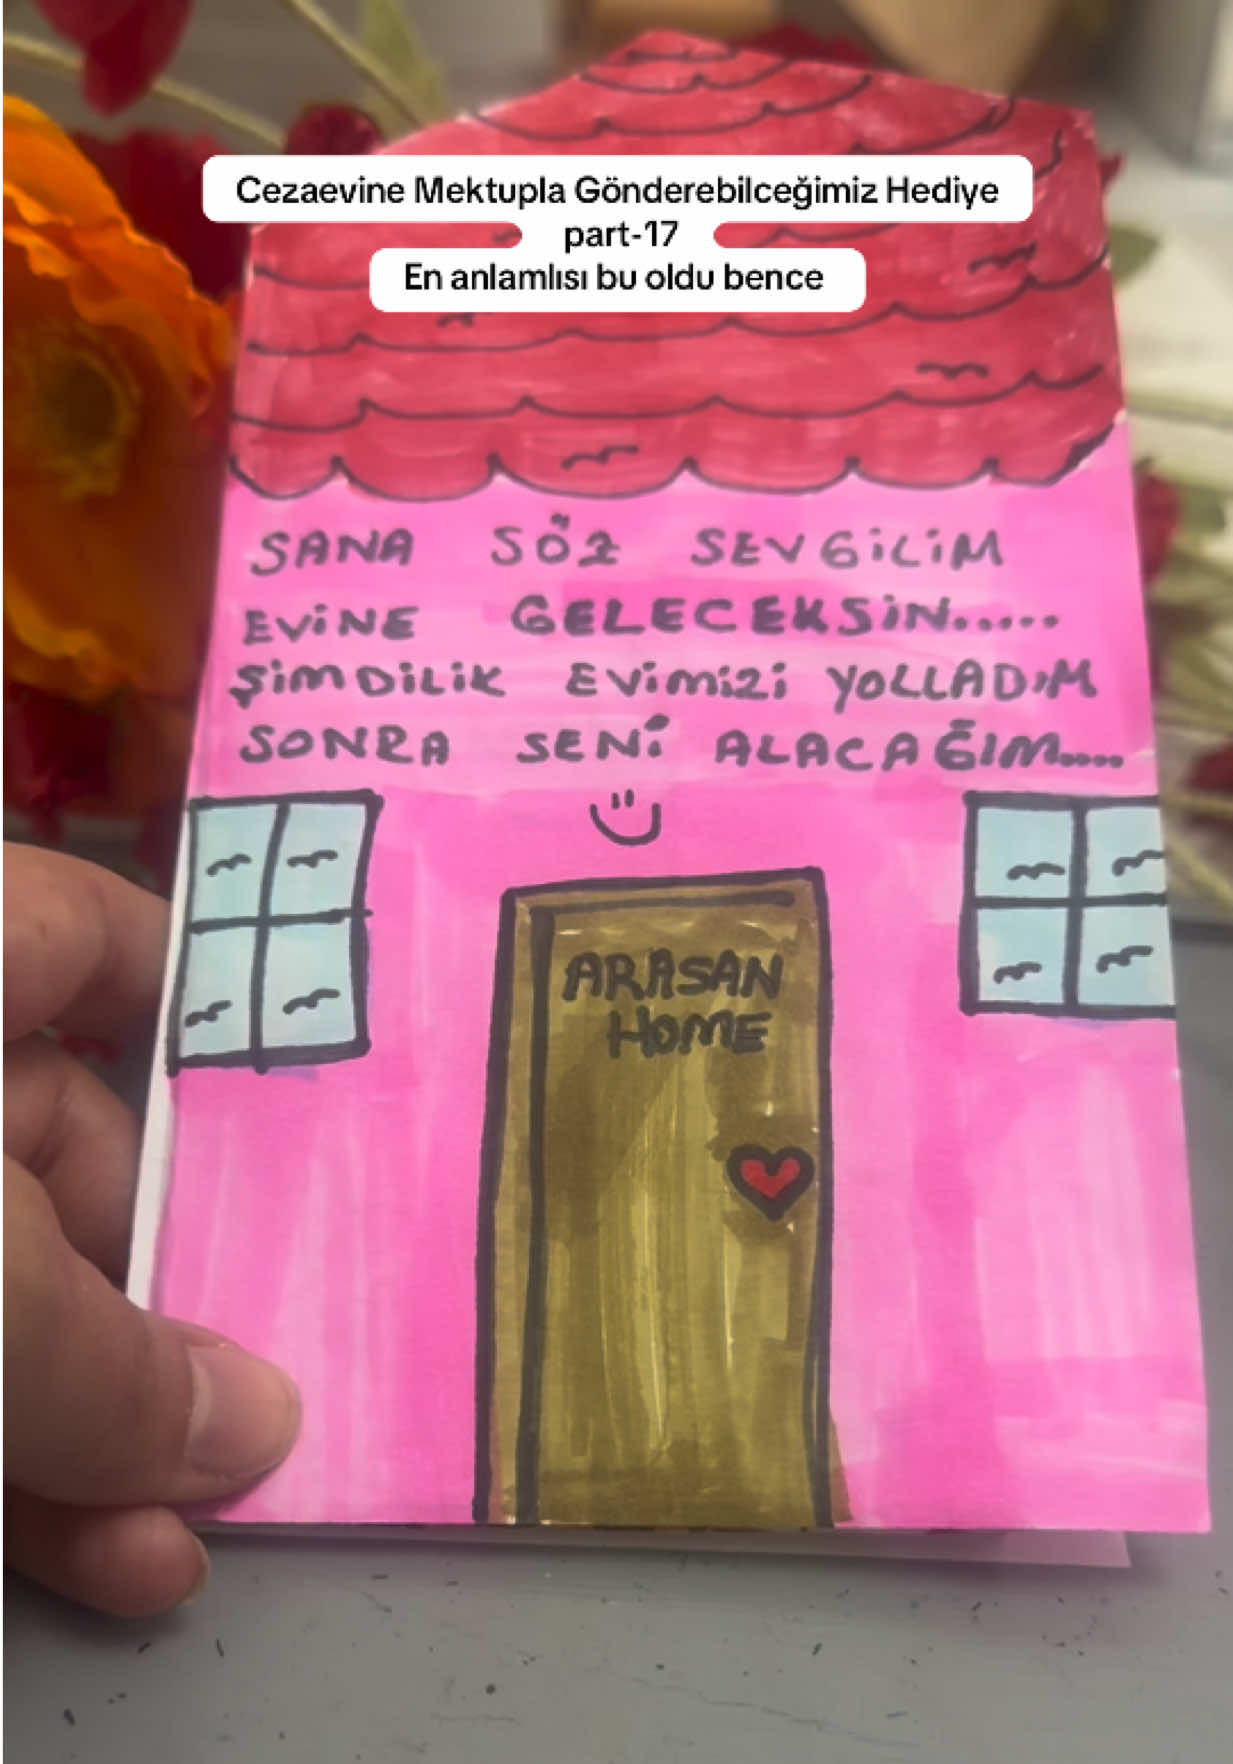 Cezaevine Mektupla Gönderebilceğimiz Hediye
part-17
En anlamlısı bu oldu bence
SANA SÖZ SEVGİLİM
EVİNE GELECEKSİN.....
ŞİMDİLİK EVİMİZİ YOLLADIM
SONRA SENİ ALACAĞIM.....
ARASAN
HOME